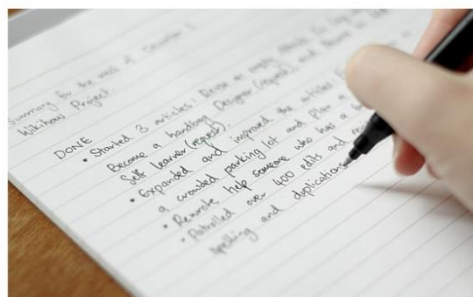 Summary for the week of December 1
Wikihow Project.
DONE
• Started 3 articles! Drive an empty
Become a handbag Designer (request), and
Self learner (request).
• Expanded and improved the articles
a crowded parking lot and Plan
• Rewrote, Help Someone who has a
• Patrolled over 400 edits and
spelling and duplication